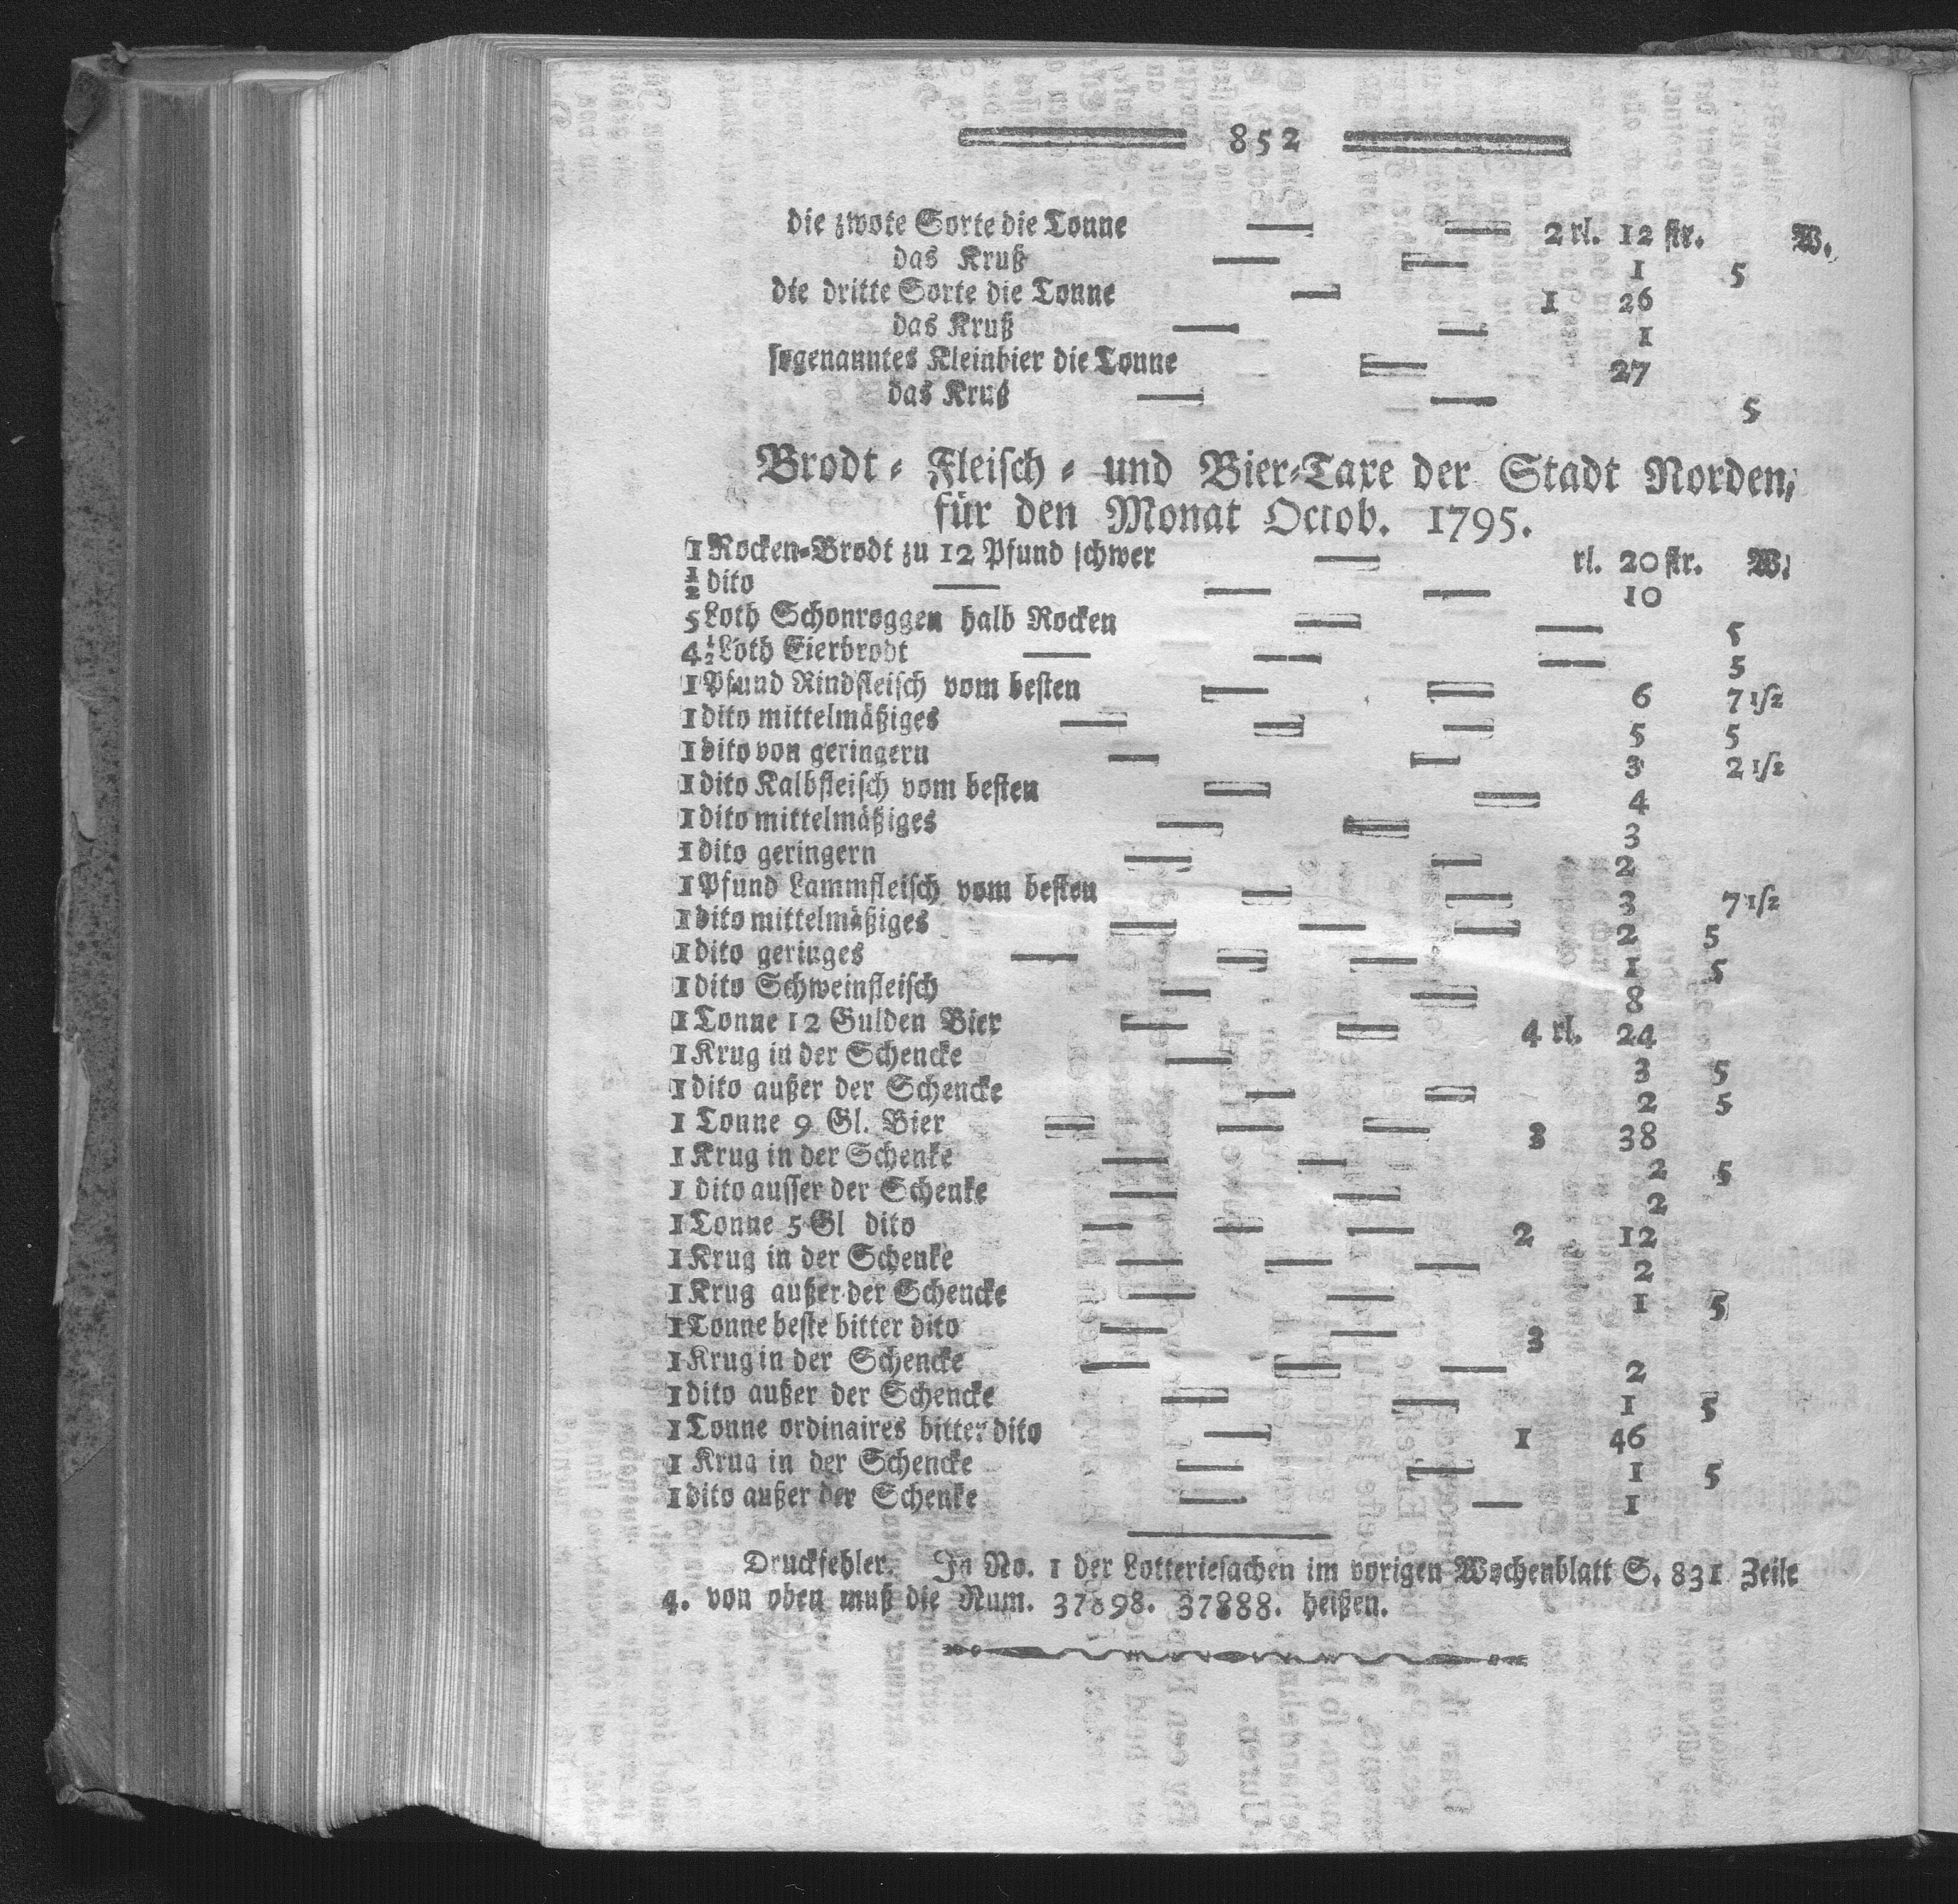 852
die zwote Sorte die Tonne — — 2 rl. 12 str. W.
das Kruß — — 1 5
die dritte Sorte die Tonne — 1 26
das Kruß — — 1
sogenanntes Kleinbier die Tonne — 27
das Kruß — — 5
Brodt- Fleisch- und Bier-Taxe der Stadt Norden,
für den Monat Octob. 1795.
1 Rocken-Brodt zu 12 Pfund schwer — rl. 20 str. W.
½ dito — — — 10
5 Loth Schonroggen halb Rocken — — 5
4½ Loth Eierbrodt — — — 5
1 Pfund Rindfleisch vom besten — — 6 7 1/2
1 dito mittelmäßiges — — — 5 5
1 dito von geringern — — 3 2 1/2
1 dito Kalbfleisch vom besten — — 4
1 dito mittelmäßiges — — 3
1 dito geringern — — 2
1 Pfund Lammfleisch vom besten — — 3 7 1/2
1 dito mittelmäßiges — — — 2 5
1 dito geringes — — — 1 5
1 dito Schweinfleisch — — 8
1 Tonne 12 Gulden Bier — — 4 rl. 24
1 Krug in der Schencke — 3 5
1 dito außer der Schencke — — 2 5
1 Tonne 9 Gl. Bier — — — 3 38
1 Krug in der Schenke — — 2 5
1 dito ausser der Schenke — — 2
1 Tonne 5 Gl dito — — — 2 12
1 Krug in der Schenke — — — 2
1 Krug außer der Schencke — — 1 5
1 Tonne beste bitter dito — — 3
1 Krug in der Schencke — — — 2
1 dito außer der Schencke — — 1 5
1 Tonne ordinaires bitter dito — 1 46
1 Krug in der Schencke — — 1 5
1 dito außer der Schenke — — 1
Druckfehler. In No. 1 der Lotteriesachen im vorigen Wochenblatt S. 831 Zeile
4. von oben muß die Num. 37898. 37888. heißen.